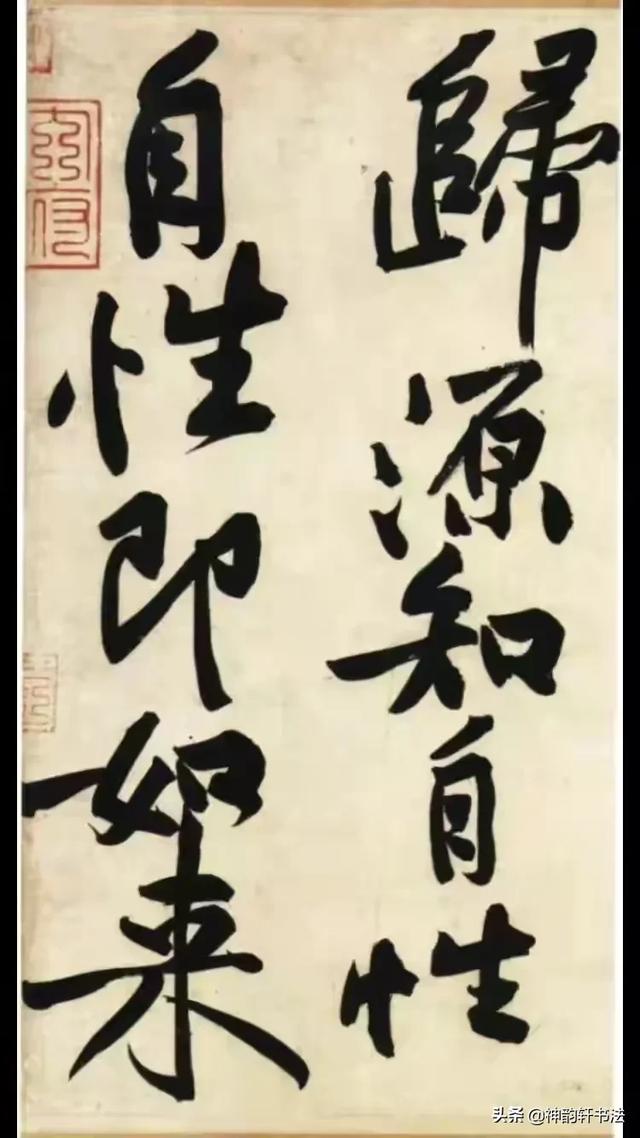 歸源知自性
自性即如来
头条 @神韵轩书法